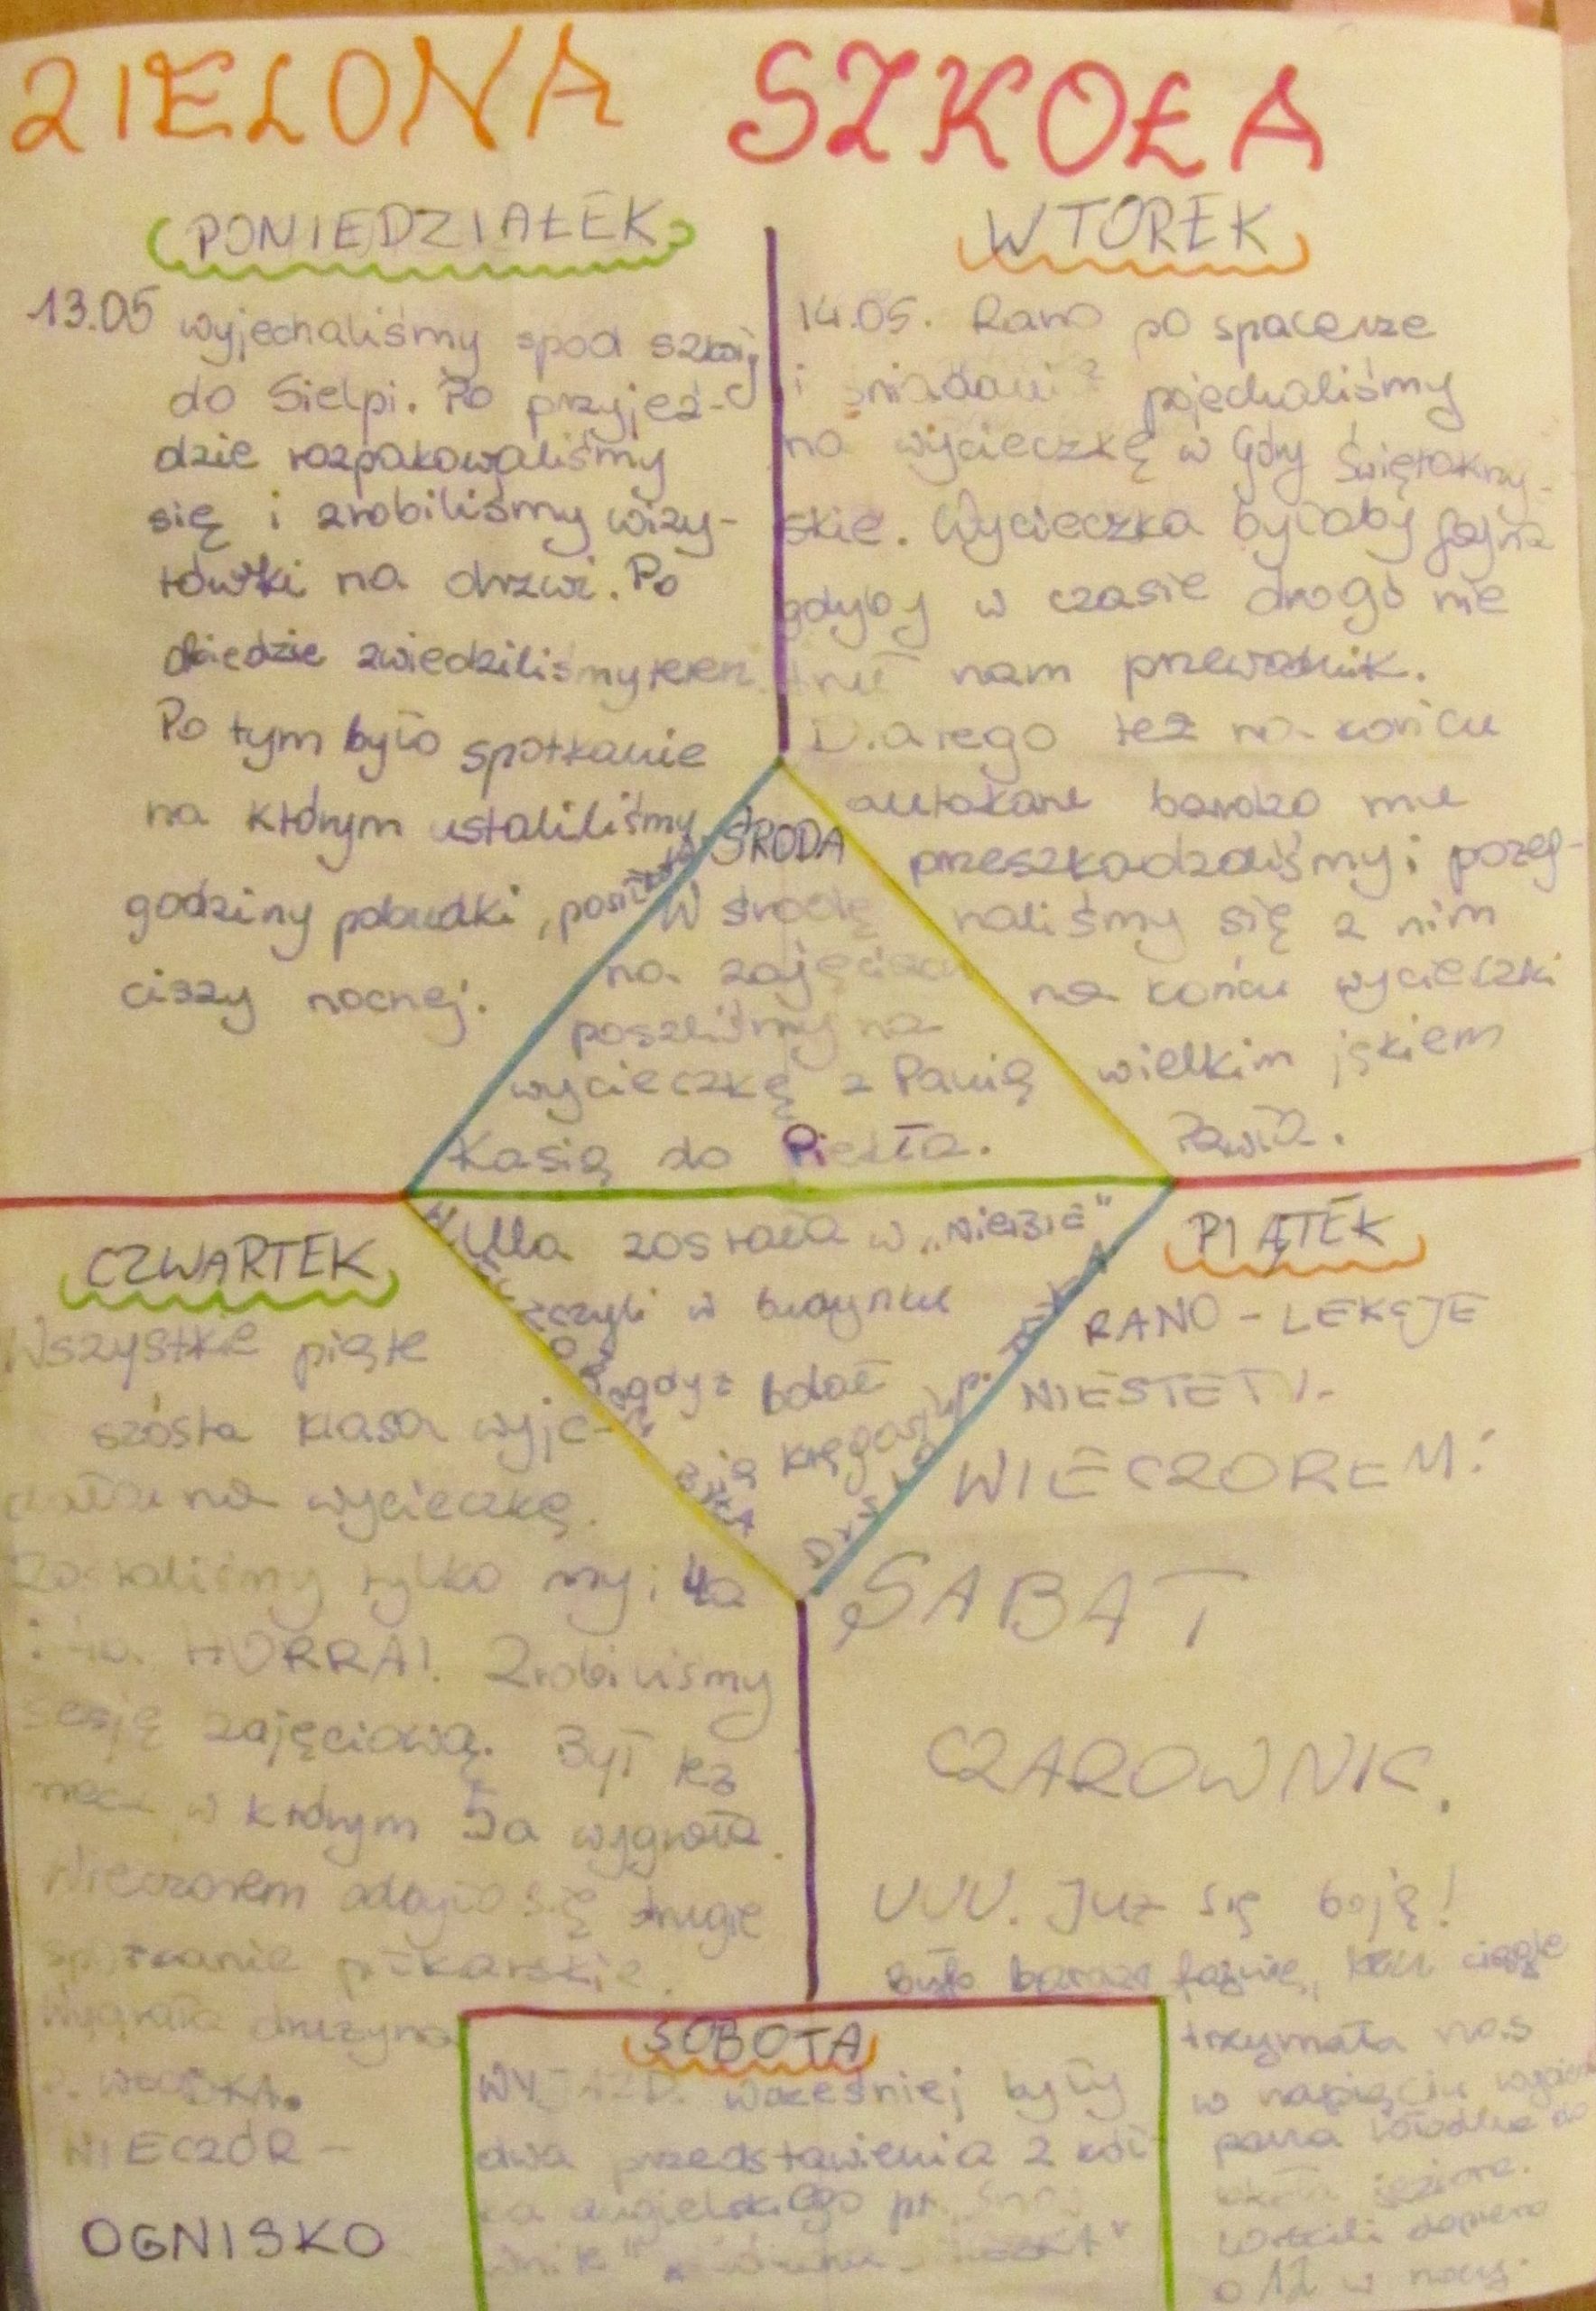 ZIELONA SZKOŁA
PONIEDZIAŁEK
13.05 wyjechaliśmy spod szkoły
do Sielpi. Po przyjeź-
dzie rozpakowaliśmy
się i zrobiliśmy wizy-
tówki na drzwi. Po
obiedzie zwiedziliśmy teren.
Po tym było spotkanie
na którym ustaliliśmy
godziny pobudki, posiłków
ciszy nocnej.
WTOREK
14.05. Rano po spacerze
i pojechaliśmy
na wycieczkę w Góry Świętokrzy-
skie. Wycieczka byłaby fajna
gdyby w czasie drogi nie
truł nam przewodnik.
Dlatego też na końcu
autokaru bardzo mu
przeszkadzaliśmy i pożeg-
naliśmy się z nim
na końcu wycieczki
wielkim jękiem
ŚRODA
W środę
na zajęciach
poszliśmy na
wycieczkę z Panią
Kasią do Piekła.
Ulla została w „NIEBIE"
czyli w budynku
gdyż bolał
ją kręgosłup.
CZWARTEK
Wszystkie piąte
szósta klasa wyje-
na wycieczkę.
Zostaliśmy tylko my i 4a
HURRA! Zrobiliśmy
sesję zajęciową. Był też
mecz w którym 5a wygrała.
Wieczorem odbyło się drugie
spotkanie piłkarskie.
Wygrała drużyna
WIECZÓR -
OGNISKO
PIĄTEK
RANO - LEKCJE
NIESTETY.
WIECZOREM:
SABAT
CZAROWNIC.
UUU. Już się boję!
Było bardzo fajnie, ciągle
trzymała nas
w napięciu
jeziora.
dopiero
o 12 w nocy.
SOBOTA
WYJAZD. Wcześniej były
dwa przedstawienia z kół-
ka angielskiego pt.